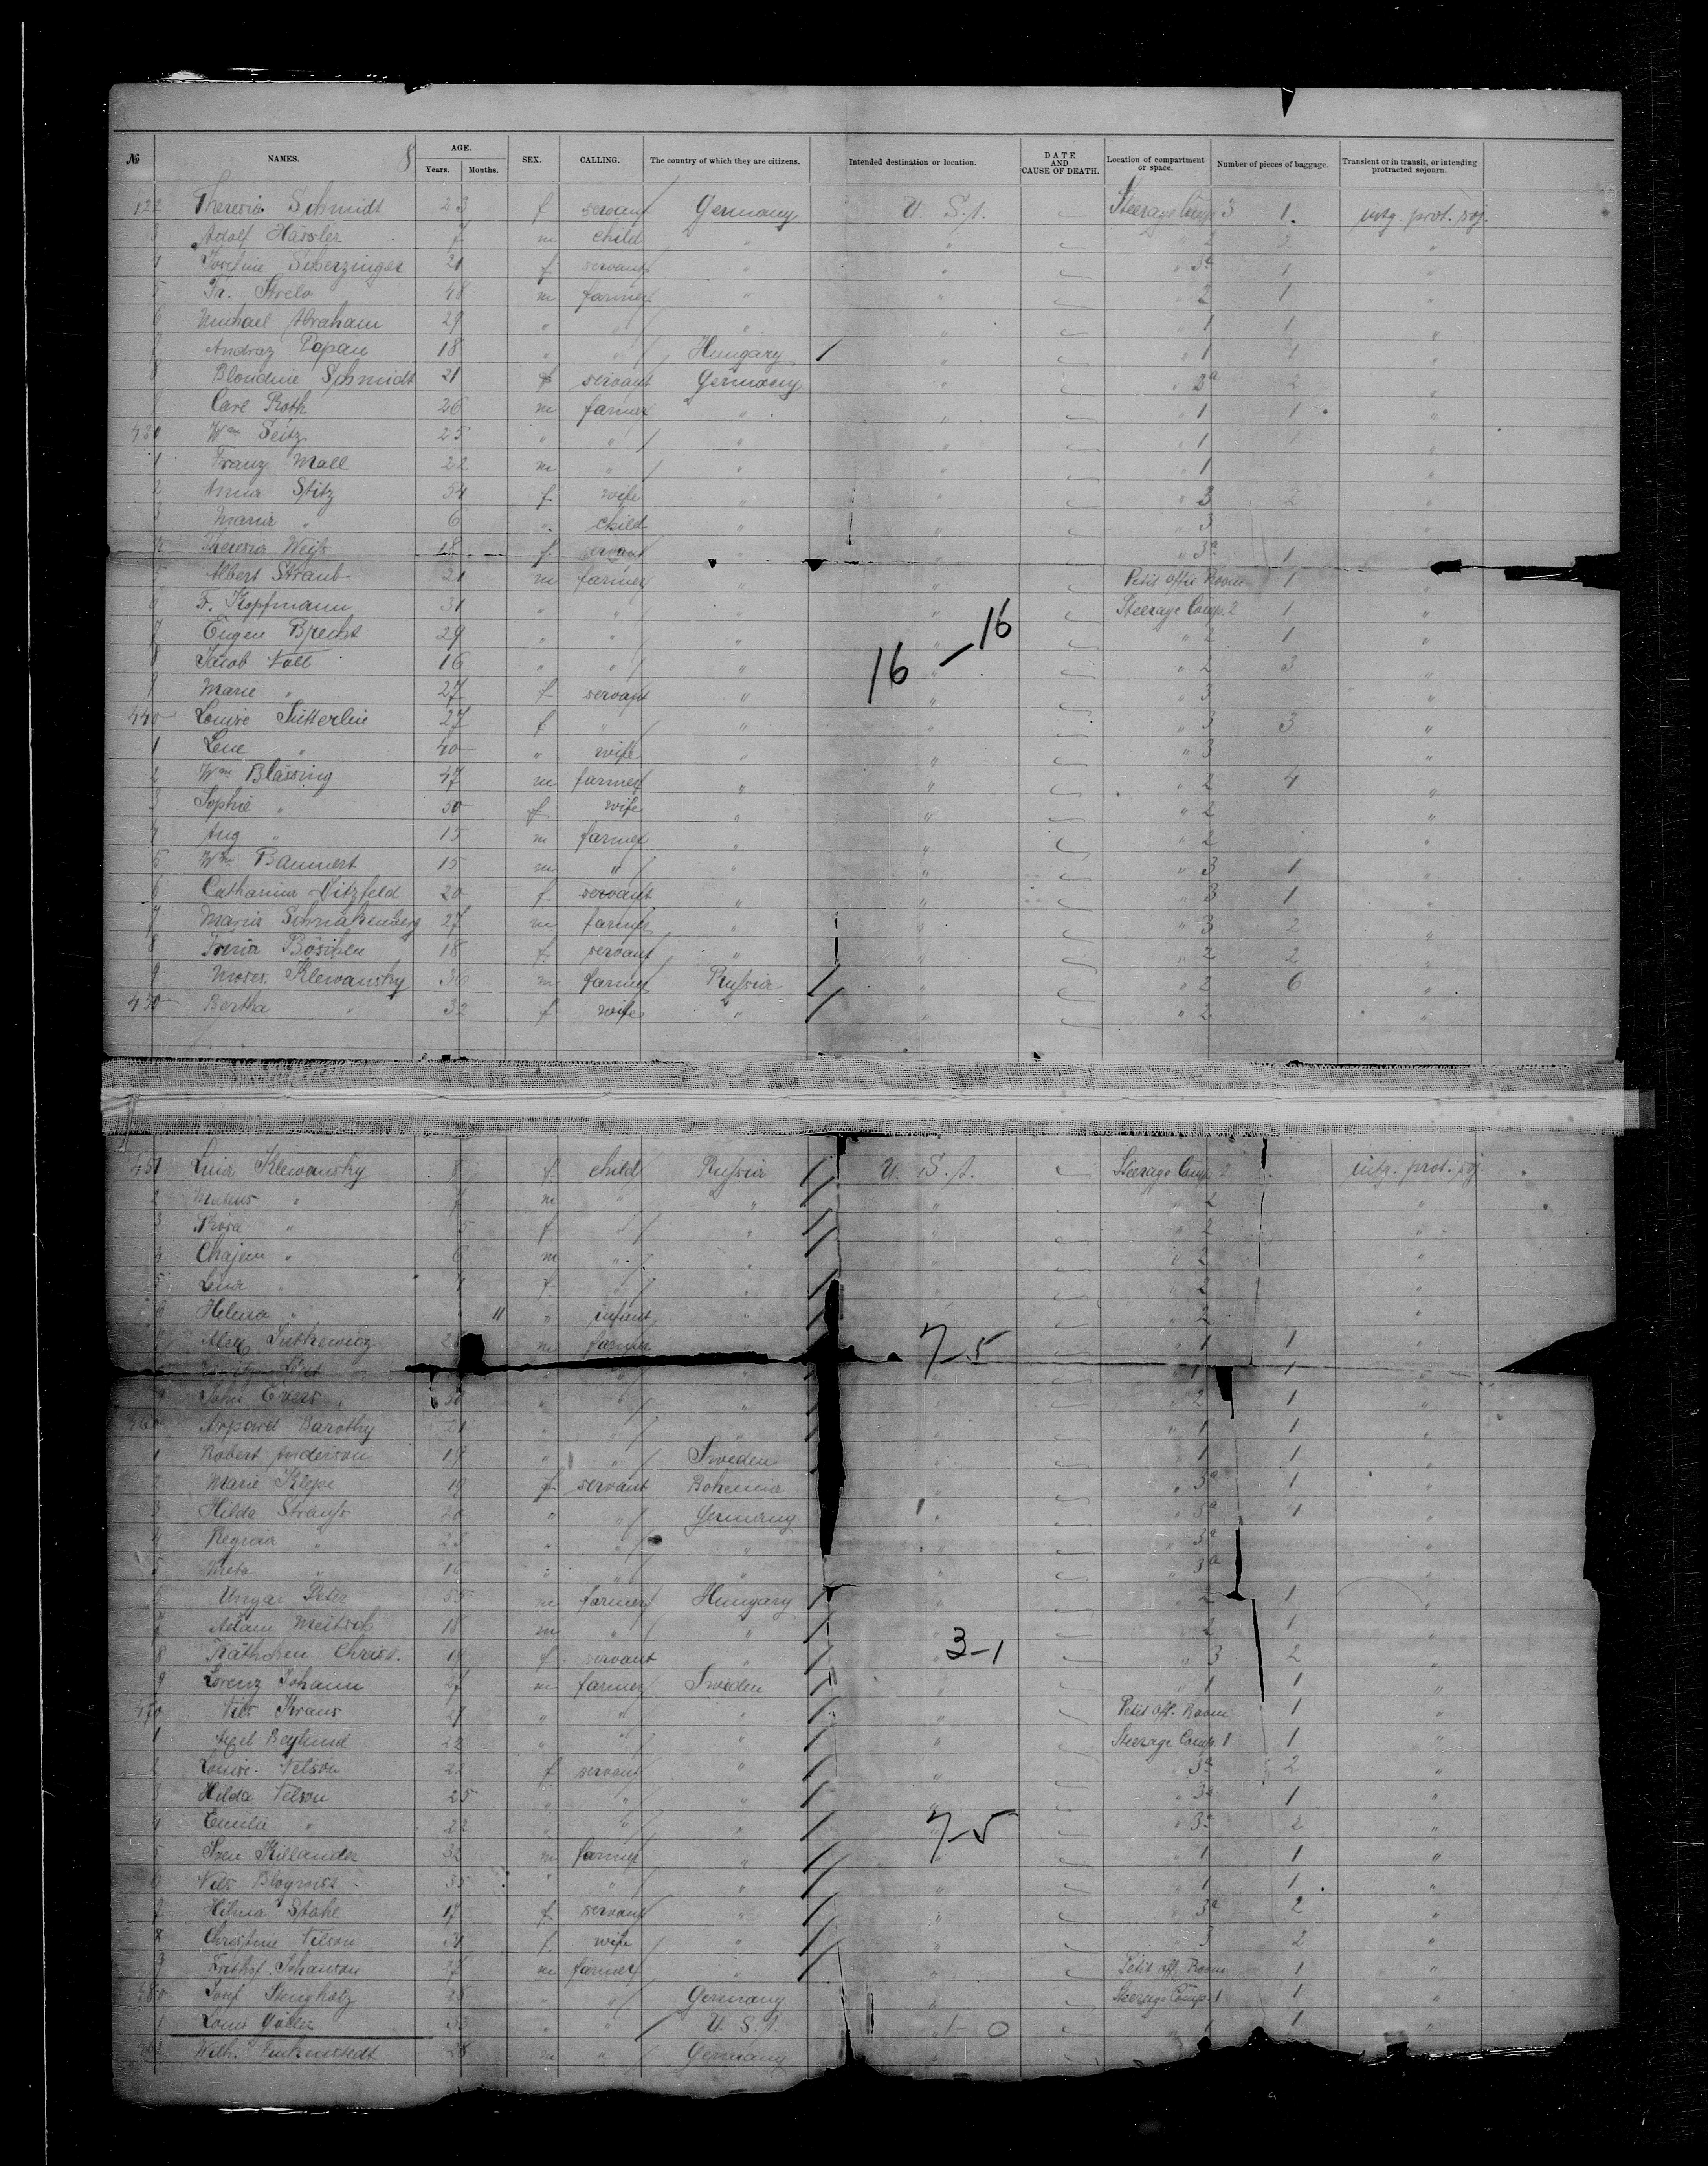 8
№ NAMES. AGE. Years. Months. SEX. CALLING. The country of which they are citizens. Intended destination or location. DATE AND CAUSE OF DEATH. Location of compartment or space. Number of pieces of baggage. Transient or in transit, or intending protracted sojourn.
122 Theresia Schmidt 23 f servant Germany U. S. A. Steerage Comp. 3 1. intg. prot. soj.
3 Adolf Hässler 7 m child " " " 2 2 "
4 Josefine Scherzinger 21 f servant " " " 3a 1 "
5 Fr. Strelo 48 m farmer " " " 2 1 "
6 Michael Abraham 29 " " " " " 1 1 "
7 Andraz Papau 18 " " Hungary " " 1 1 "
8 Blondine Schmidt 21 f servant Germany " " 3a 2 "
9 Carl Roth 26 m farmer " " " 1 1 "
430 Wm Seitz 25 " " " " " 1 "
1 Franz Mall 22 m " " " " 1 "
2 Anna Stitz 54 f wife " " " 3 2 "
3 Maria " 6 " child " " " 3 "
4 Theresia Weiß 18 f servant " " 3a 1 "
5 Albert Straub 21 m farmer " Petit offic Room 1 "
6 F. Kopfmann 31 " " " " Steerage Comp. 2 1 "
7 Eugen Brecht 29 " " " " " 2 1 "
8 Jacob Noll 16 " " " 16 – 16 " 2 3 "
9 Marie " 27 f servant " " " 3 "
440 Louise Sütterlin 27 f " " " " 3 3 "
1 Lene " 40 " wife " " " 3 "
2 Wm Blässing 47 m farmer " " " 2 4 "
3 Sophie " 50 f wife " " " 2 "
4 Aug " 15 m farmer " " " 2 "
5 Wm Bannert 15 m " " " " 3 1 "
6 Catharina Ditzfeld 20 f servant " " " 3 1 "
7 Maria Schnakenberg 27 m farmer " " " 3 2 "
8 18 f servant " " " 2 2 "
9 Moses Klewansky 36 m farmer Russia " " 2 6 "
450 Bertha " 32 f wife " " " 2 "
451 Klewansky 8 f child Russia U. S. A. Steerage Comp. 2 intg. prot. soj.
2 " 7 m " " " " 2 "
3 Rosa " 5 f " " " " 2 "
4 Chajem " 6 m " " " " 2 "
5 Lena " 4 f " " " " 2 "
6 Helena " 11 " infant " " " 2 "
7 Alex m farmer 7–5 " 1 1 "
" " " " 1 1 "
9 John Evers " " " " " 2 1 "
460 Arpard Barothy 21 " " " " " 1 1 "
1 Robert Anderson 19 " " Sweden " " 1 1 "
2 Marie Klepe 19 f servant Bohemia " " 3a 1 "
3 Hilda Strauß 20 " " Germany " " 3a 4 "
4 Regina " 23 " " " " " 3a "
5 Meta " 16 " " " " " 3a "
6 Ungar Peter 55 m farmer Hungary " " 2 1 "
7 Adam 18 m " " " " 2 1 "
8 Käthchen Christ. 19 f servant " 3–1 " 3 2 "
9 Lorenz Johann 27 m farmer Sweden " " 1 1 "
470 Nils Kraus 27 " " " " Petit off. Room 1 "
1 Axel 22 " " " " Steerage Comp. 1 1 "
2 Louise Nelson 22 f servant " " " 3a 2 "
3 Hilda Nelson 25 " " " " " 3a 1 "
4 Emilie " 22 " " " 7–5 " 3a 2 "
5 Sven Killander 32 m farmer " " " 1 1 "
6 Nils 35 " " " " " 1 1 "
7 Hilma Stahl 17 f servant " " " 3a 2 "
8 Christine Nelson f wife " " " 3 2 "
9 Frithof Johanson 27 m farmer " " Petit off. Room 1 "
480 Josef 28 " " Germany " Steerage Comp. 1 1 "
1 Louis 33 " " U. S. A. 1–0 " 1 1 "
482 Wilh. 28 m " Germany "